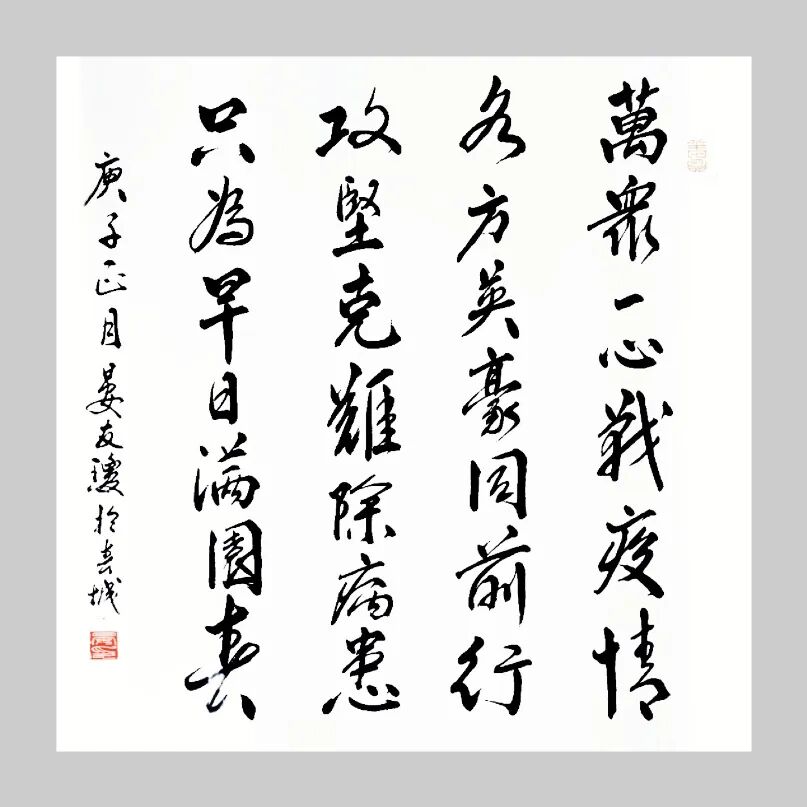 萬衆一心戰疫情
各方英豪同前行
攻堅克難除病患
只為早日满園春
庚子正月晏友瓊於春城